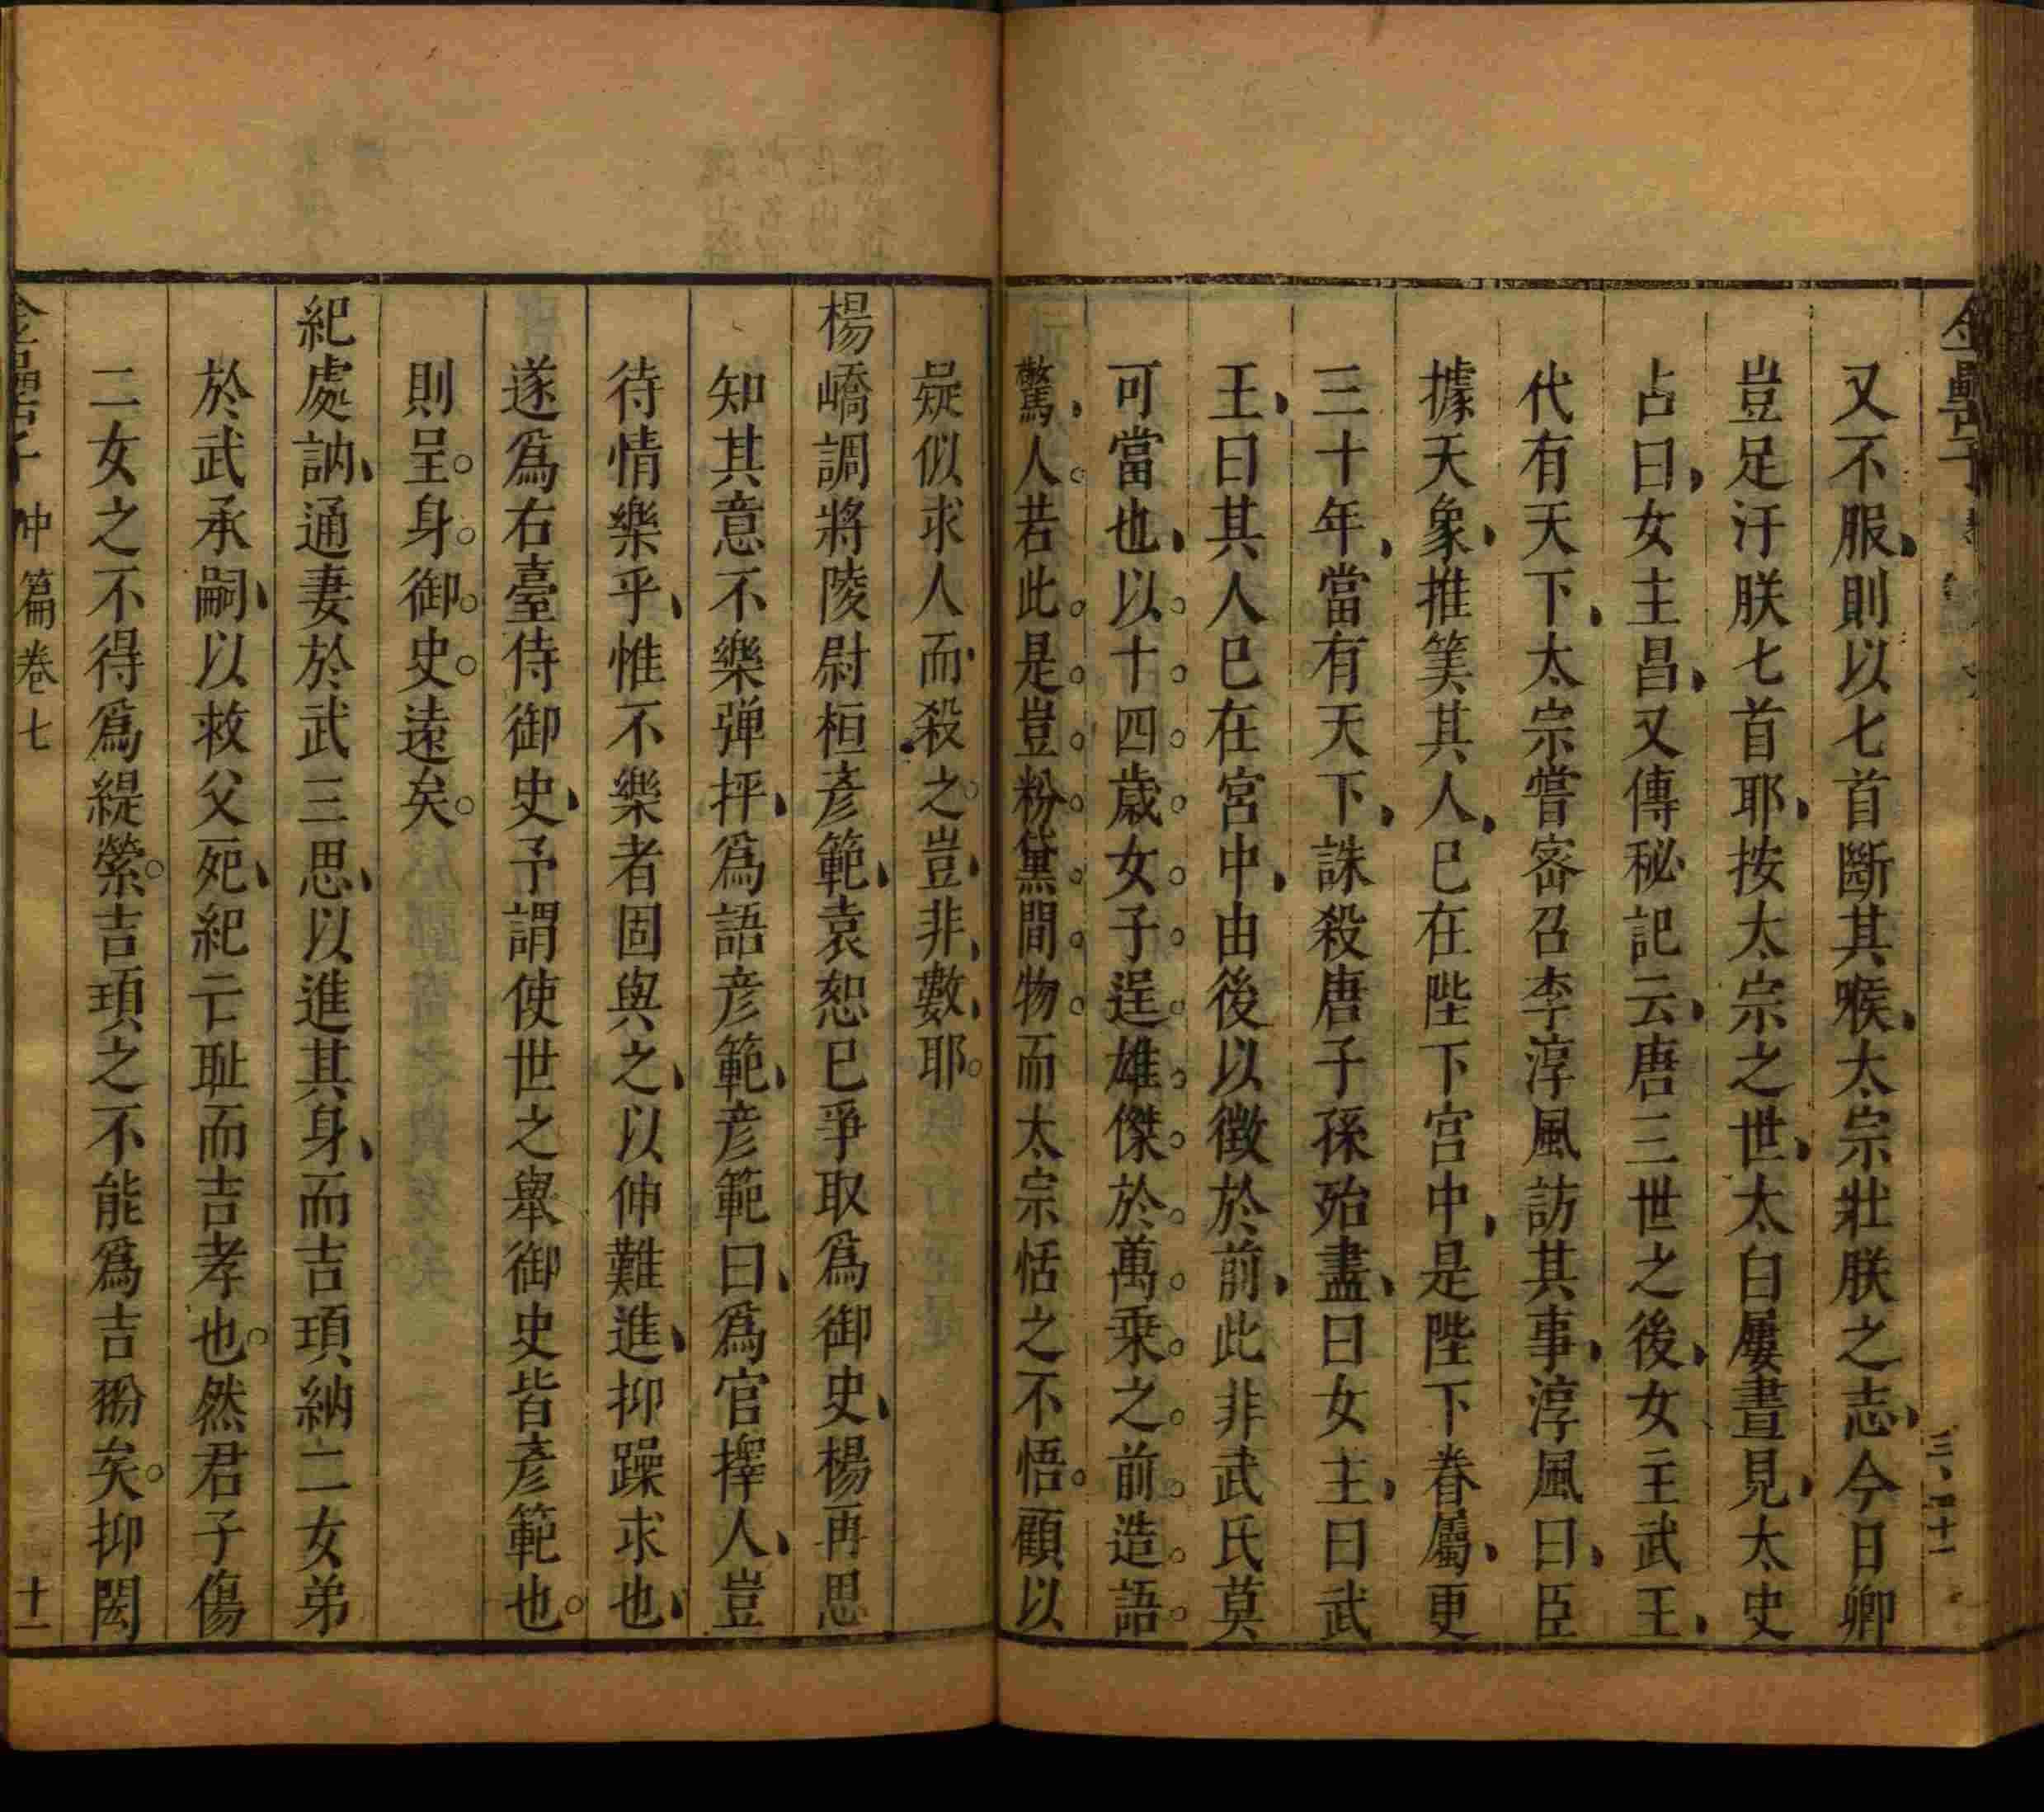 又不服則以七首斷其喉太宗壯朕之志今日卿
豈足汙朕七首耶按太宗之世太白屢晝見太史
占曰女主昌又傳秘記云唐三世之後女主武王
代有天下太宗嘗密召李淳風訪其事淳風曰臣
據天象推筭其人已在陛下宮中是陛下眷屬更
三十年當有天下誅殺唐子孫殆盡曰女主曰武
王曰其人已在宮中由後以徵於前此非武氏莫
可當也以十四歲女子逞雄傑於萬乗之前造語
驚人若此是豈粉黛間物而太宗恬之不悟顧以
疑似求人而殺之豈非數耶
楊嶠調將陵尉桓彥範袁恕已爭取爲御史楊再思
知其意不樂彈抨爲語彥範彥範曰爲官擇人豈
待情樂乎惟不樂者固與之以伸難進抑躁求也
遂爲右臺侍御史予謂使世之舉御史皆彥範也
則呈身御史遠矣
紀處訥通妻於武三思以進其身而吉頊納二女弟
於武承嗣以救父死紀亡耻而吉孝也然君子傷
二女之不得爲緹縈吉頊之不能爲吉翂矣抑閎
中篇卷七
十一